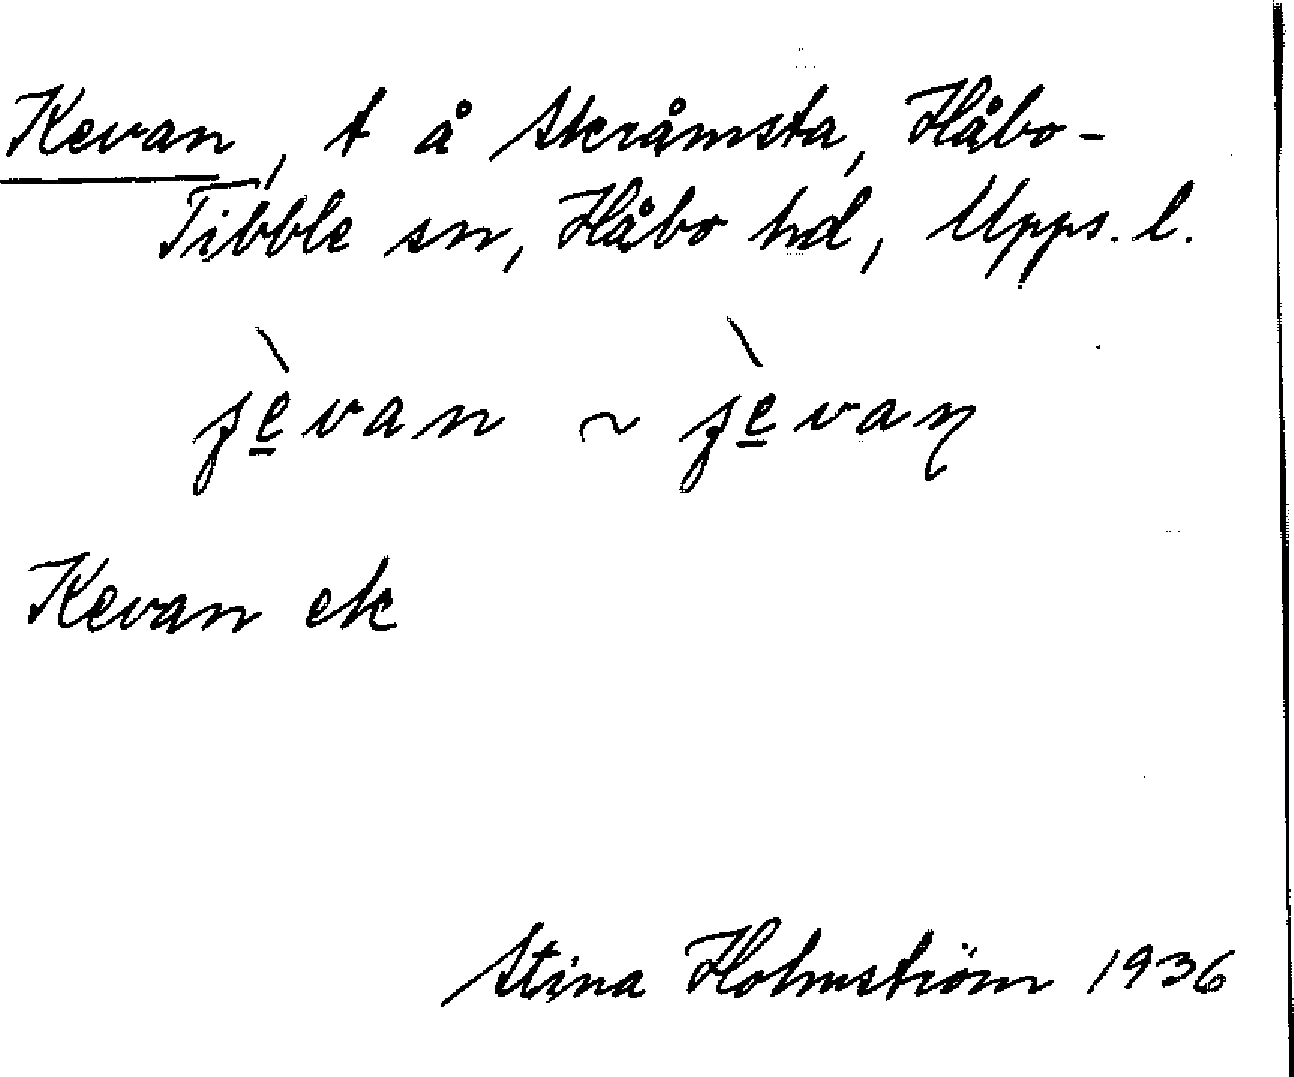 Kevan, t å Skråmsta, Håbo-
Tibble sn, Håbo hd, Upps. l.
jè̱van ~ jè̱vaŋ
Kevan ek
Stina Holmström 1936